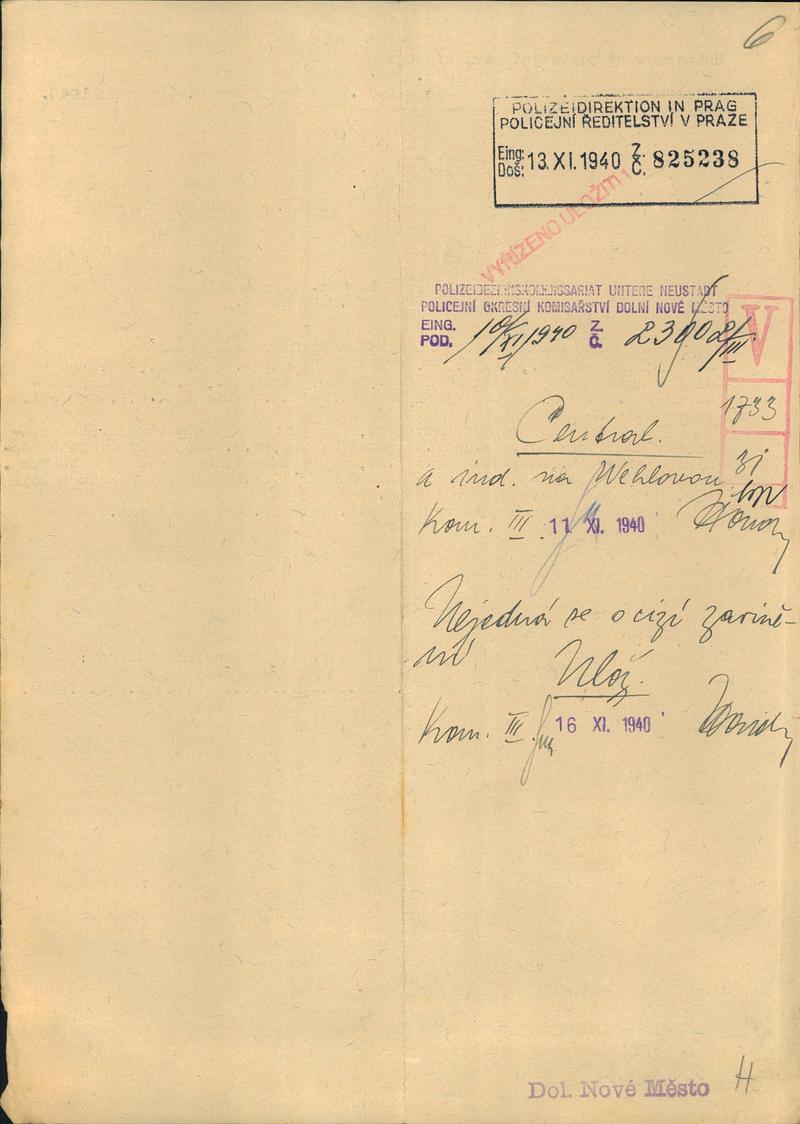 6
POLIZEIDIREKTION IN PRAG
POLICEJNÍ ŘEDITELSTVÍ V PRAZE
Eing: Doš: 13.XI.1940 Z. Č. 825238
VYŘÍZENO ULOŽITI
POLIZEIBEZIRKSKOMMISSARIAT UNTERE NEUSTADT
POLICEJNÍ OKRESNÍ KOMISAŘSTVÍ DOLNÍ NOVÉ MĚSTO
EING. POD. 10/XI 1940 Z. Č. 23902/III
V
1733
Central.
31
a ind. na Wehlovou
Kom. III 11 XI. 1940
Nejedná se o cizí zavině-
ní
Ulož.
Kom. III 16 XI. 1940
Dol. Nové Město
H